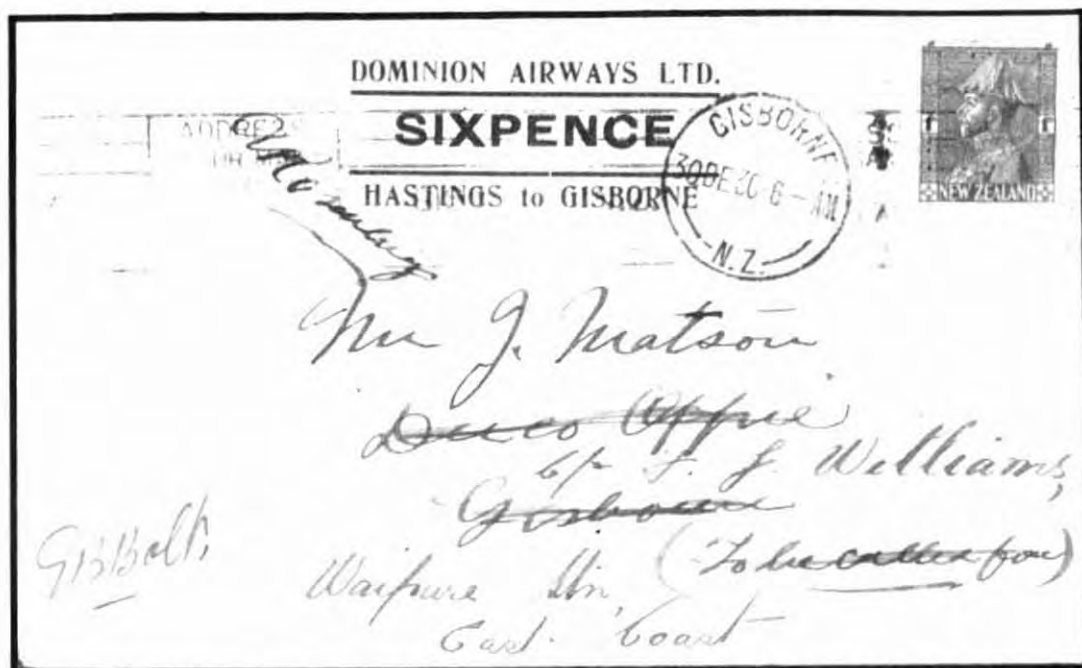 DOMINION AIRWAYS LTD.
SIXPENCE
HASTINGS to GISBORNE
GISBORNE
30 DE 30 6 - AM
N.Z.
NEW ZEALAND
ADDRES
Mr J. Matson
Office
c/o F. J. Williams,
Gisborne
(To be called for)
East Coast